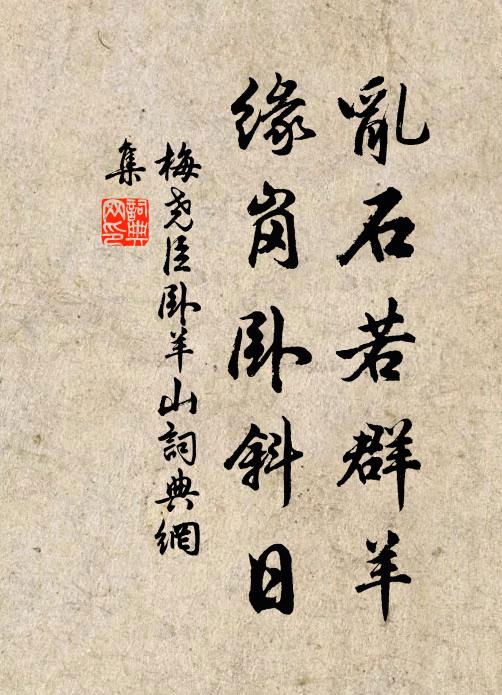 亂石若群羊
緣崗臥斜日
梅堯臣臥羊山詞典網
集
詞典
网印